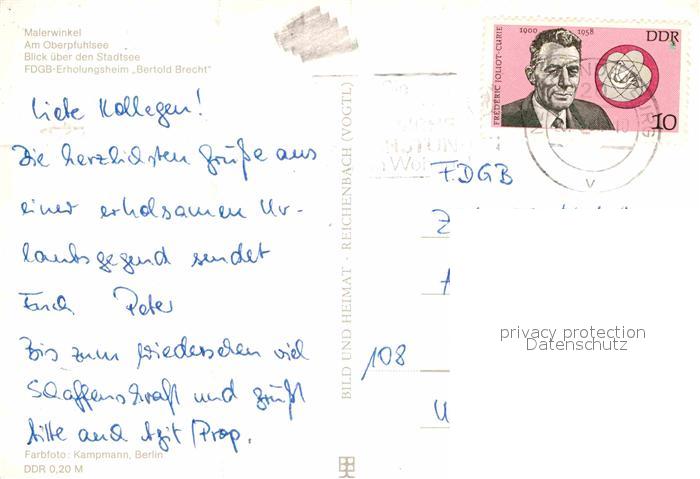 Malerwinkel
Am Oberpfuhlsee
Blick über den Stadtsee
FDGB-Erholungsheim „Bertold Brecht"
Liebe Kollegen!
Die herzlichsten Grüße aus
einer erholsamen Ur-
laubsgegend sendet
Euch Peter
Bis zum Wiedersehen viel
Schaffenskraft und grüßt
bitte auch Agit/Prop.
Farbfoto: Kampmann, Berlin
DDR 0,20 M
BILD UND HEIMAT · REICHENBACH (VOGTL)
FRÉDÉRIC JOLIOT-CURIE
1900 1958
DDR
10
FDGB
Z
108
U
privacy protection
Datenschutz